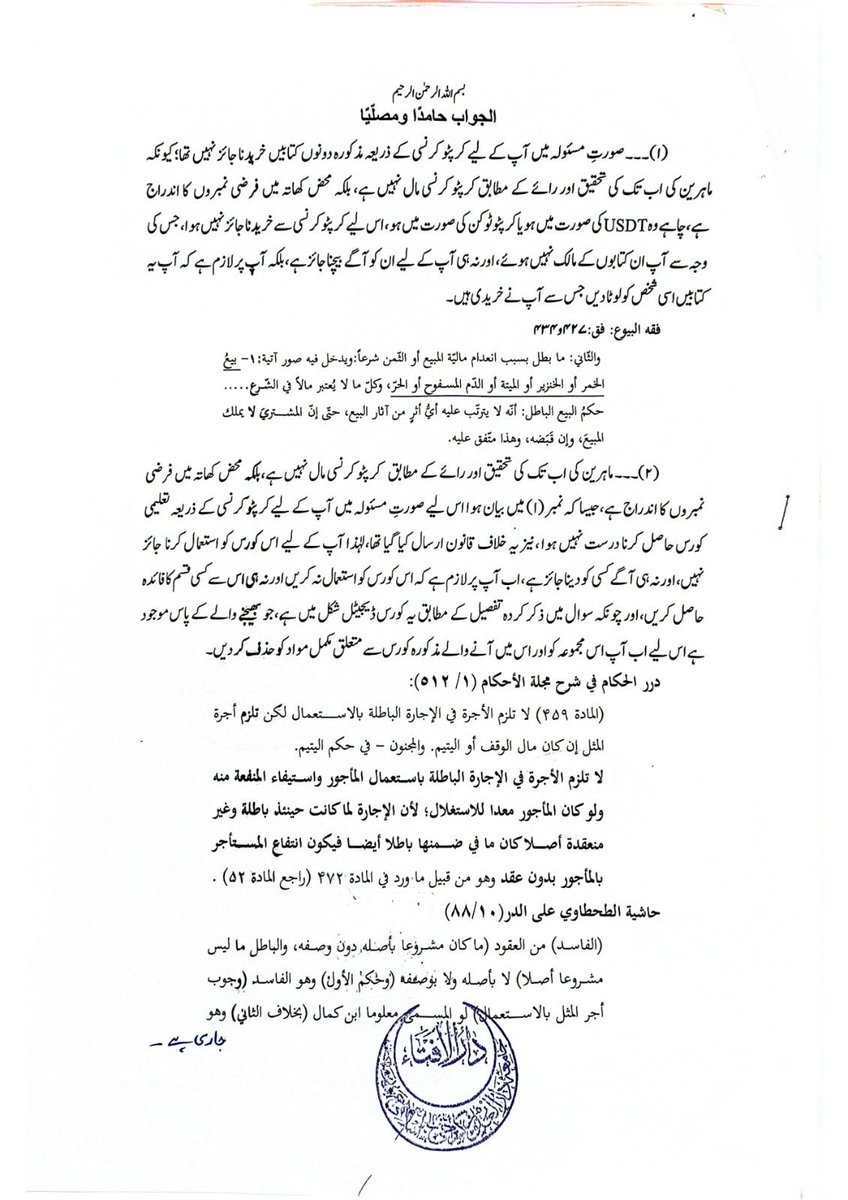 بسم اللہ الرحمٰن الرحیم
الجواب حامدًا ومصلّیًا
(۱)۔۔۔ صورتِ مسئولہ میں آپ کے لیے کرپٹو کرنسی کے ذریعہ مذکورہ دونوں کتابیں خریدنا جائز نہیں تھا؛ کیونکہ
ماہرین کی اب تک کی تحقیق اور رائے کے مطابق کرپٹو کرنسی مال نہیں ہے، بلکہ محض کھاتہ میں فرضی نمبروں کا اندراج
ہے، چاہے وہ USDT کی صورت میں ہو یا کرپٹو ٹوکن کی صورت میں ہو، اس لیے کرپٹو کرنسی سے خریدنا جائز نہیں ہوا، جس کی
وجہ سے آپ ان کتابوں کے مالک نہیں ہوئے، اور نہ ہی آپ کے لیے ان کو آگے بیچنا جائز ہے، بلکہ آپ پر لازم ہے کہ آپ یہ
کتابیں اسی شخص کو لوٹا دیں جس سے آپ نے خریدی ہیں۔
فقه البيوع: فق: ۴۲۷و۴۳۴
والثّاني: ما بطل بسبب انعدام ماليّة المبيع أو الثّمن شرعاً: ويدخل فيه صور آتية: ۱- بيعُ
الخمر أو الخنزير أو الميتة أو الدّم المسفوح أو الحرّ، وكلّ ما لا يُعتبر مالاً في الشّرع .....
حكمُ البيع الباطل: أنّه لا يترتّب عليه أيُّ أثرٍ من آثار البيع، حتّى إنّ المشتريَ لا يملك
المبيعَ، وإن قَبَضه، وهذا متّفق عليه.
(۲)۔۔۔ ماہرین کی اب تک کی تحقیق اور رائے کے مطابق کرپٹو کرنسی مال نہیں ہے، بلکہ محض کھاتہ میں فرضی
نمبروں کا اندراج ہے، جیسا کہ نمبر (۱) میں بیان ہوا اس لیے صورتِ مسئولہ میں آپ کے لیے کرپٹو کرنسی کے ذریعہ تعلیمی
کورس حاصل کرنا درست نہیں ہوا، نیز یہ خلاف قانون ارسال کیا گیا تھا، لہٰذا آپ کے لیے اس کورس کو استعمال کرنا جائز
نہیں، اور نہ ہی آگے کسی کو دینا جائز ہے، اب آپ پر لازم ہے کہ اس کورس کو استعمال نہ کریں اور نہ ہی اس سے کسی قسم کا فائدہ
حاصل کریں، اور چونکہ سوال میں ذکر کردہ تفصیل کے مطابق یہ کورس ڈیجیٹل شکل میں ہے، جو بھیجنے والے کے پاس موجود
ہے اس لیے اب آپ اس مجموعہ کو اور اس میں آنے والے مذکورہ کورس سے متعلق مکمل مواد کو حذف کر دیں۔
درر الحكام في شرح مجلة الأحكام (۱/ ۵۱۲):
(المادة ۴۵۹) لا تلزم الأجرة في الإجارة الباطلة بالاستعمال لكن تلزم أجرة
المثل إن كان مال الوقف أو اليتيم. والمجنون - في حكم اليتيم.
لا تلزم الأجرة في الإجارة الباطلة باستعمال المأجور واستيفاء المنفعة منه
ولو كان المأجور معدا للاستغلال؛ لأن الإجارة لما كانت حينئذ باطلة وغير
منعقدة أصلا كان ما في ضمنها باطلا أيضا فيكون انتفاع المستأجر
بالمأجور بدون عقد وهو من قبيل ما ورد في المادة ۴۷۲ (راجع المادة ۵۲) .
حاشية الطحطاوي على الدر (۱۰/ ۸۸)
(الفاسد) من العقود (ما كان مشروعا بأصله دون وصفه، والباطل ما ليس
مشروعا أصلا) لا بأصله ولا بوصفه (وحكم الأول) وهو الفاسد (وجوب
أجر المثل بالاستعمال) لو المسمى معلوما ابن كمال (بخلاف الثاني) وهو
جاری ہے -
دار الافتاء